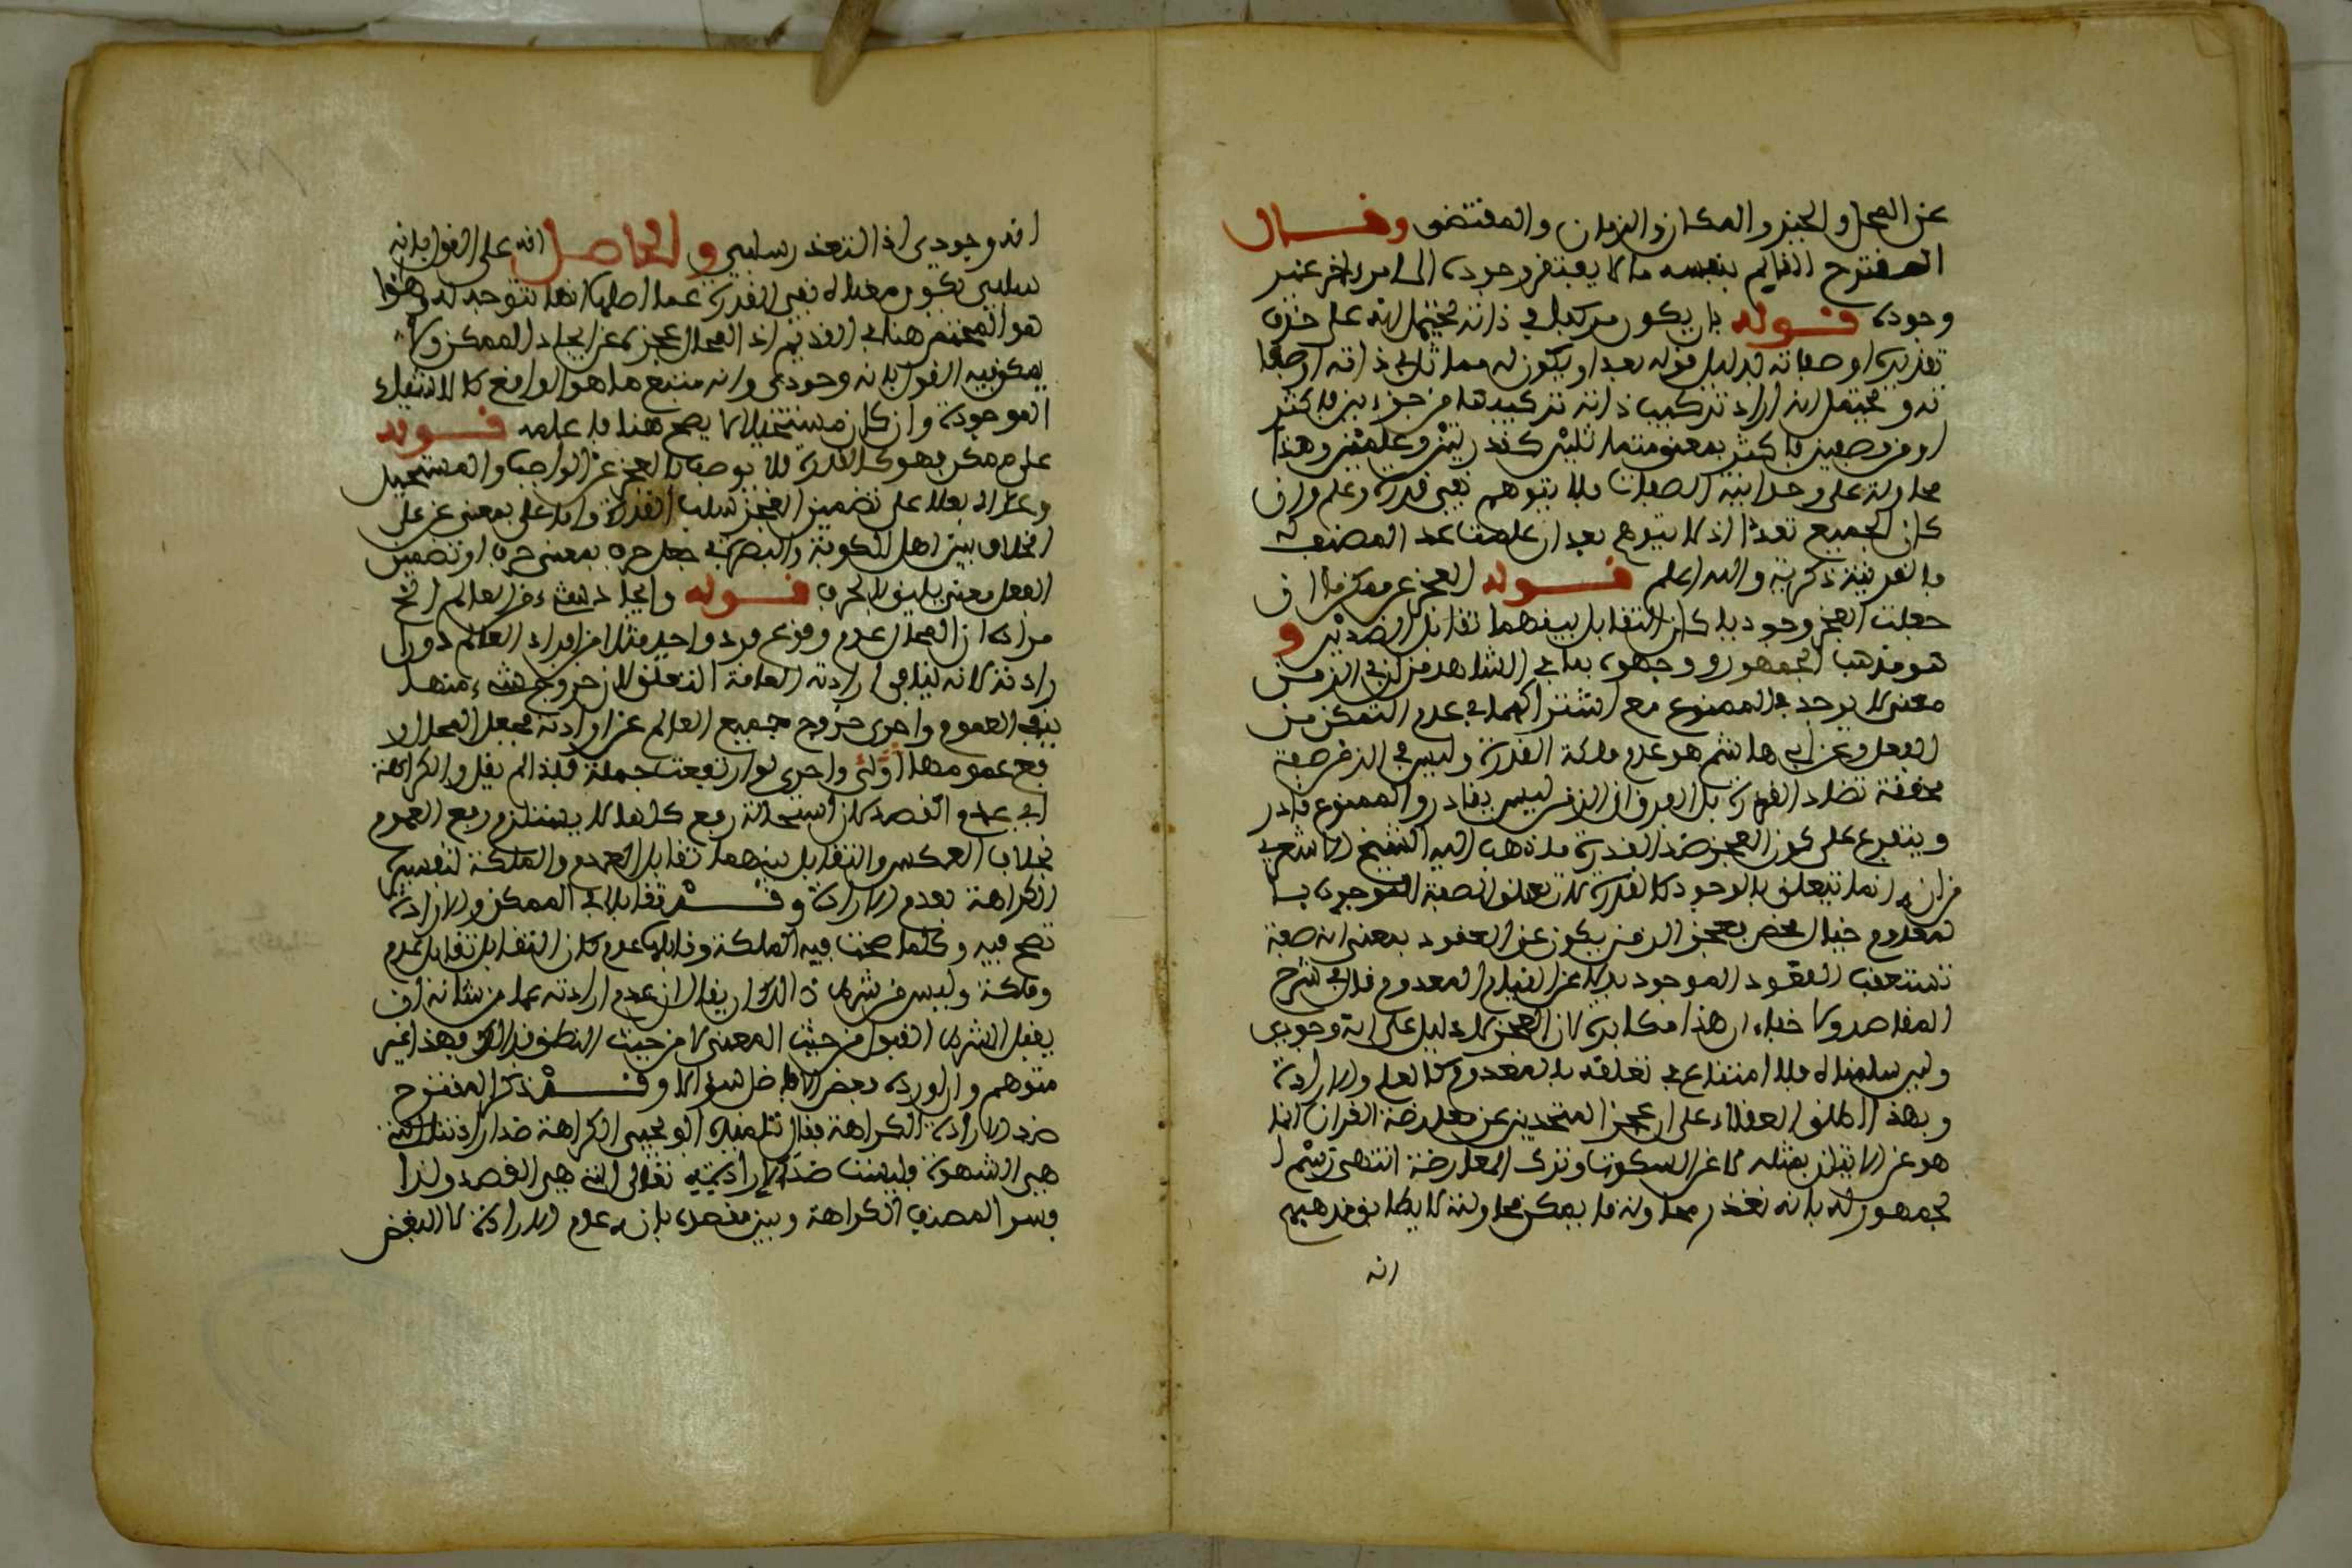 عن المحل والحيز والمكان والزمان والمقتضى وقال
المقترح القائم بنفسه ما لا يفتقر وجوده الى امر اخر غير
وجوده قوله بان يكون مركبا في ذاته يحتمل انه على حذف
تقديره او صفاته بدليل قوله بعد او يكون له مماثل في ذاته او صفا
ته ويحتمل انه اراد تركيب ذاته تركيبها من جزءين فاكثر
او من وصفين فاكثر بمعنى متماثلين كقدرتين وعلمين وهذا
محاولة على وحدانية الصفات فلا يتوهم نفي قدرة وعلم وان
كان الجميع تعددا اذ لا يتوهم بعد ان علمت عد المصنف له
بالقرينة ذكرته والله اعلم قوله العجز عن ممكن ما ان
جعلت العجز وجوديا كان التقابل بينهما تقابل الضدين و
هو مذهب الجمهور ووجهوه بما في الشاهد من ان في الزمن
معنى لا يوجد في الممنوع مع اشتراكهما في عدم التمكن من
الفعل وعن ابي هاشم هو عدم ملكة القدرة وليس في الزمن صفة
محققة تضاد القدرة بل الفرق ان الزمن ليس بقادر والممنوع قادر
ويتفرع على كون العجز ضد القدرة ما ذهب اليه الشيخ الاشعري
من انه انما يتعلق بالوجود كالقدرة لان تعلق الصفة الموجودة با
لمعدوم خيال محض فعجز الزمن يكون عن القعود بمعنى انه صفة
تستعقب القعود الموجود بدلا عن القيام المعدوم قال في شرح
المقاصد ولا خفاء ان هذا مكابرة لان العجز لا دليل على انه وجودي
ولئن سلمناه فلا امتناع في تعلقه بالمعدوم كالعلم والارادة
وبهذا اطلق العقلاء على ان عجز المتحدين عن معارضة القران انما
هو عن الاتيان بمثله لا عن السكوت وترك المعارضة انتهى ثم ا
لجمهور له بانه تعذر محاولة ما يمكن محاولته لا يطابق مذهبهم
انه
انه وجودي اذ التعذر سلبي والحاصل انه على القول بانه
سلبي يكون معناه نفي القدرة عما تتوجه له وهذا
هو المختص هنا في القديم اذ المحال عجزه عن ايجاد الممكن ولا
يمكن فيه القول بانه وجودي وانه منتبع ما هو الواقع كالاشياء
الموجودة وان كان مستحيلا لا يصح هنا فاعلمه قوله
على ممكن فهو كالقدرة فلا يوصف بالعجز عن الواجب والمستحيل
وعداه بعلى على تضمين العجز سلب القدرة واما على بمعنى عن على
الخلاف بين اهل الكوفة والبصرة في جعل حرف بمعنى حرف او تضمين
الفعل معنى يليق بالحرف قوله وايجاد شيء من العالم الخ
مراده ان المحال عدم وقوع فرد واحد مثلا من افراد العالم دون ا
رادته لانه ينافي ارادته العامة التعلق لان خروج شيء منها
ينفي العموم واحرى خروج جميع العالم عن ارادته فجعل المحال ر
فع عمومها اولى واحرى لو ارتفعت جملة فلذا لم يقل والكراهة
اي عدم القصد لان استحالة رفع كلها لا يستلزم رفع العموم
بخلاف العكس والتقابل بينهما تقابل العدم والملكة لتفسير
الكراهة بعدم الارادة وقد تقابلا في الممكن والارادة
تصح فيه وكلما صحت فيه الملكة وقابلها عدم كان التقابل تقابل عدم
وملكة وليس من شرط ذلك ان يقال ان عدم ارادته عما من شانه ان
يقبل الشرط القبول من حيث المعنى لا من حيث النطق بذلك وهذا غير
متوهم وان اورده بعض الافاضل سؤالا وقد ذكر المقترح
ضد الارادة الكراهة فقال تلميذه ابو يحيى الكراهة ضد ارادتنا التي
هي الشهوة وليست ضد الارادته تعالى التي هي القصد ولذا
فسر المصنف الكراهة وبين مقصده بان عدم الارادة لا البغض